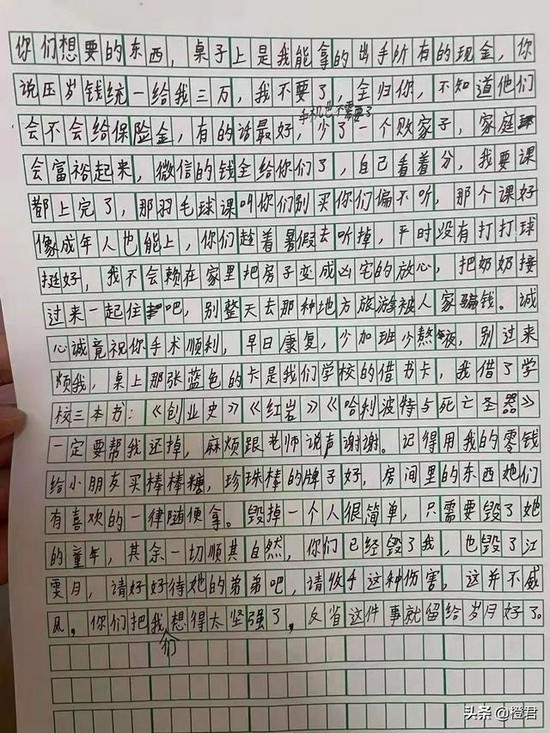 你们想要的东西，桌子上是我能拿的出手所有的现金，你
说压岁钱统一给我三万，我不要了，全归你，不知道他们
手机也不需要了
会不会给保险金，有的话最好，少了一个败家子，家庭
会富裕起来，微信的钱全给你们了，自己看着分，我要课
都上完了，那羽毛球课叫你们别买你们偏不听，那个课好
像成年人也能上，你们趁着暑假去听掉，平时没有打打球
挺好，我不会赖在家里把房子变成凶宅的放心，把奶奶接
过来一起住吧，别整天去那种地方旅游被人家骗钱。诚
心诚竟视你手术顺利，早日康复，少加班少熬夜，别过来
烦我，桌上那张蓝色的卡是我们学校的借书卡，我借了学
校三本书：《创业史》《红岩》《哈利波特与死亡圣器》
一定要帮我还掉，麻烦跟老师说声谢谢。记得用我的零钱
给小朋友买棒棒糖，珍珠棒的牌子好，房间里的东西她们
有喜欢的一律随便拿。毁掉一个人很简单，只需要毁了她
的童年，其余一切顺其自然，你们已经毁了我，也毁了江
雯月，请好好待她的弟弟吧，请收手这种伤害，这并不威
风，你们把我想得太坚强了，反省这件事就留给岁月好了。
们
头条 @橙君